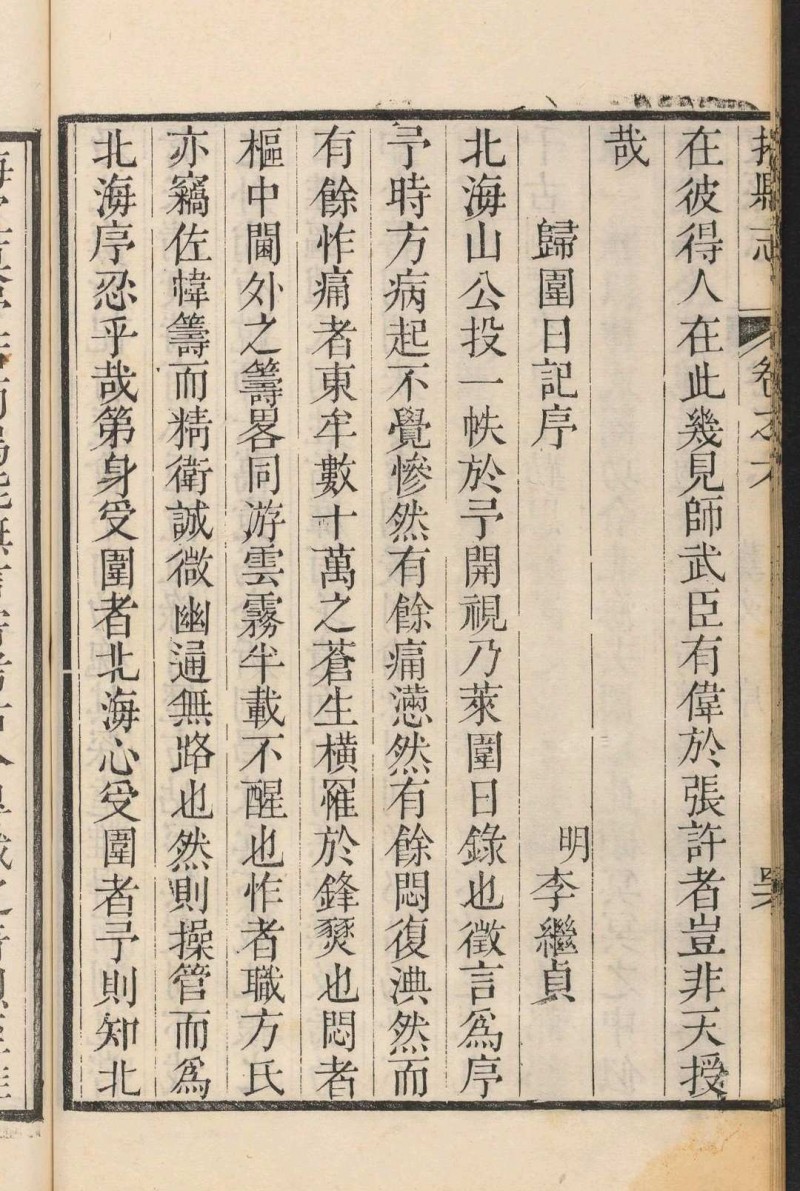 掖縣志 卷之六
在彼得人在此幾見師武臣有偉於張許者豈非天授
哉
歸圍日記序 明李繼貞
北海山公投一帙於予開視乃萊圍日錄也徵言爲序
予時方病起不覺慘然有餘痛懣然有餘悶復淟然而
有餘怍痛者東牟數十萬之蒼生橫罹於鋒燹也悶者
樞中閫外之籌畧同游雲霧半載不醒也怍者職方氏
亦竊佐幃籌而精衛誠微幽通無路也然則操管而爲
北海序忍乎哉第身受圍者北海心受圍者予則知北